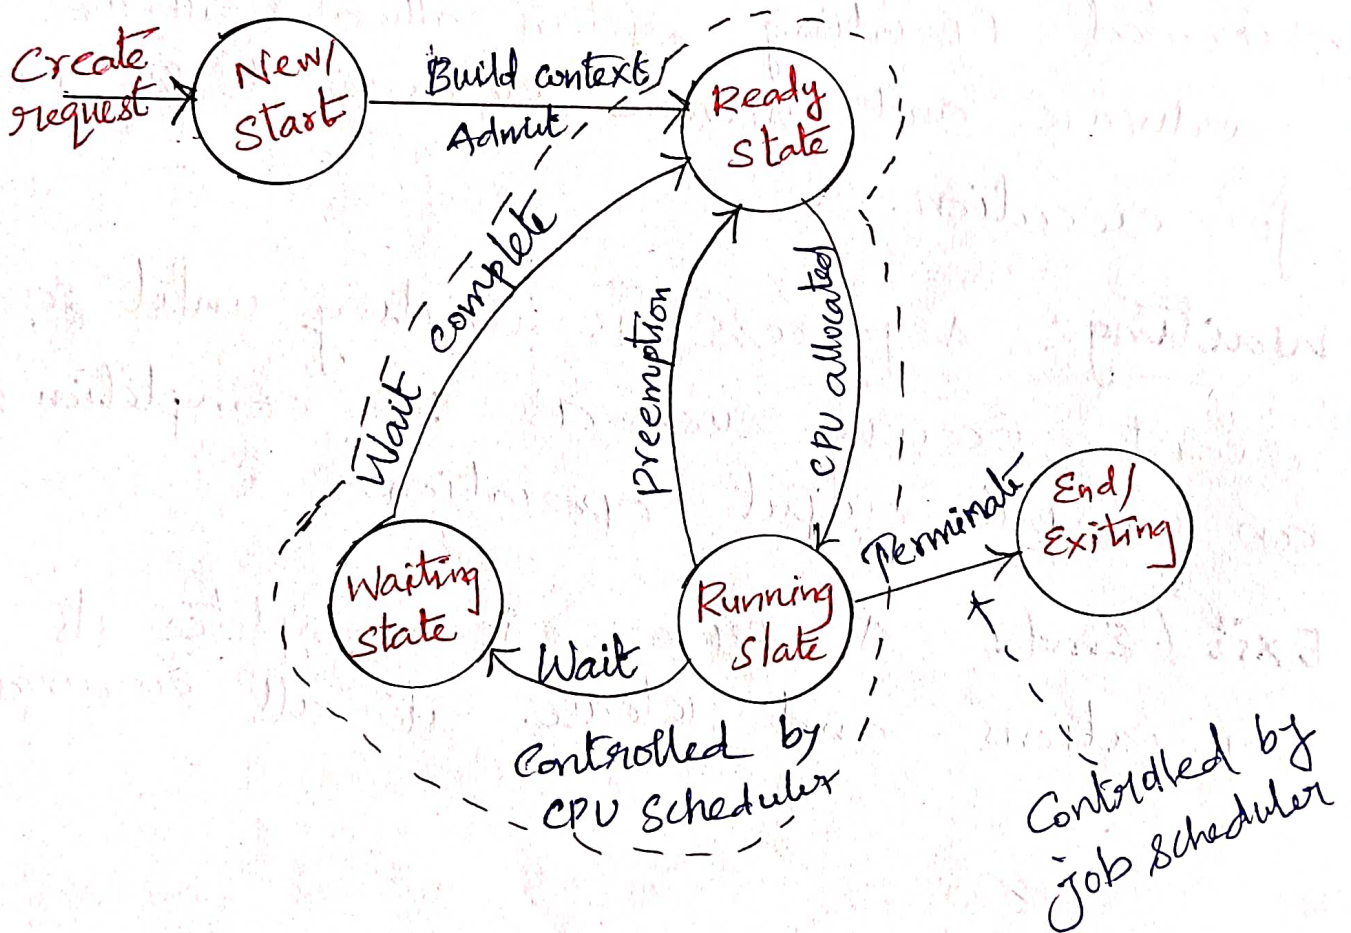 Create
request
New/
Start
Build context/
Admit
Ready
State
Wait complete
Preemption
CPU allocated
Waiting
state
Wait
Running
State
Terminate
End/
Exiting
Controlled by
CPU Scheduler
Controlled by
job scheduler